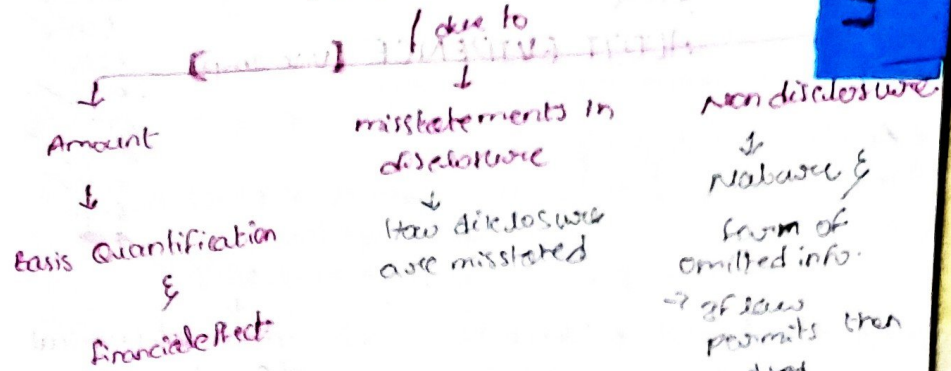 due to
Amount
↓
Basis Quantification
&
financial effect
misstatements in
disclosure
↓
How disclosure
are misstated
Non disclosure
↓
Nature &
form of
omitted info.
→ If law
permits then